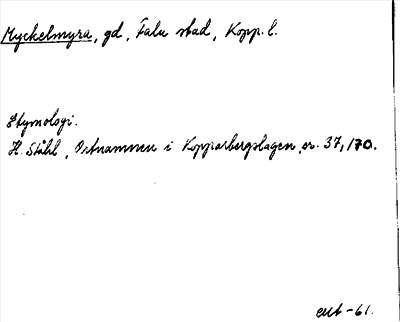 Myckelmyra, gd, Falu stad, Kopp. l.
Etymologi.
H. Ståhl, Ortnamnen i Kopparbergslagen, s. 37, 170.
-61.